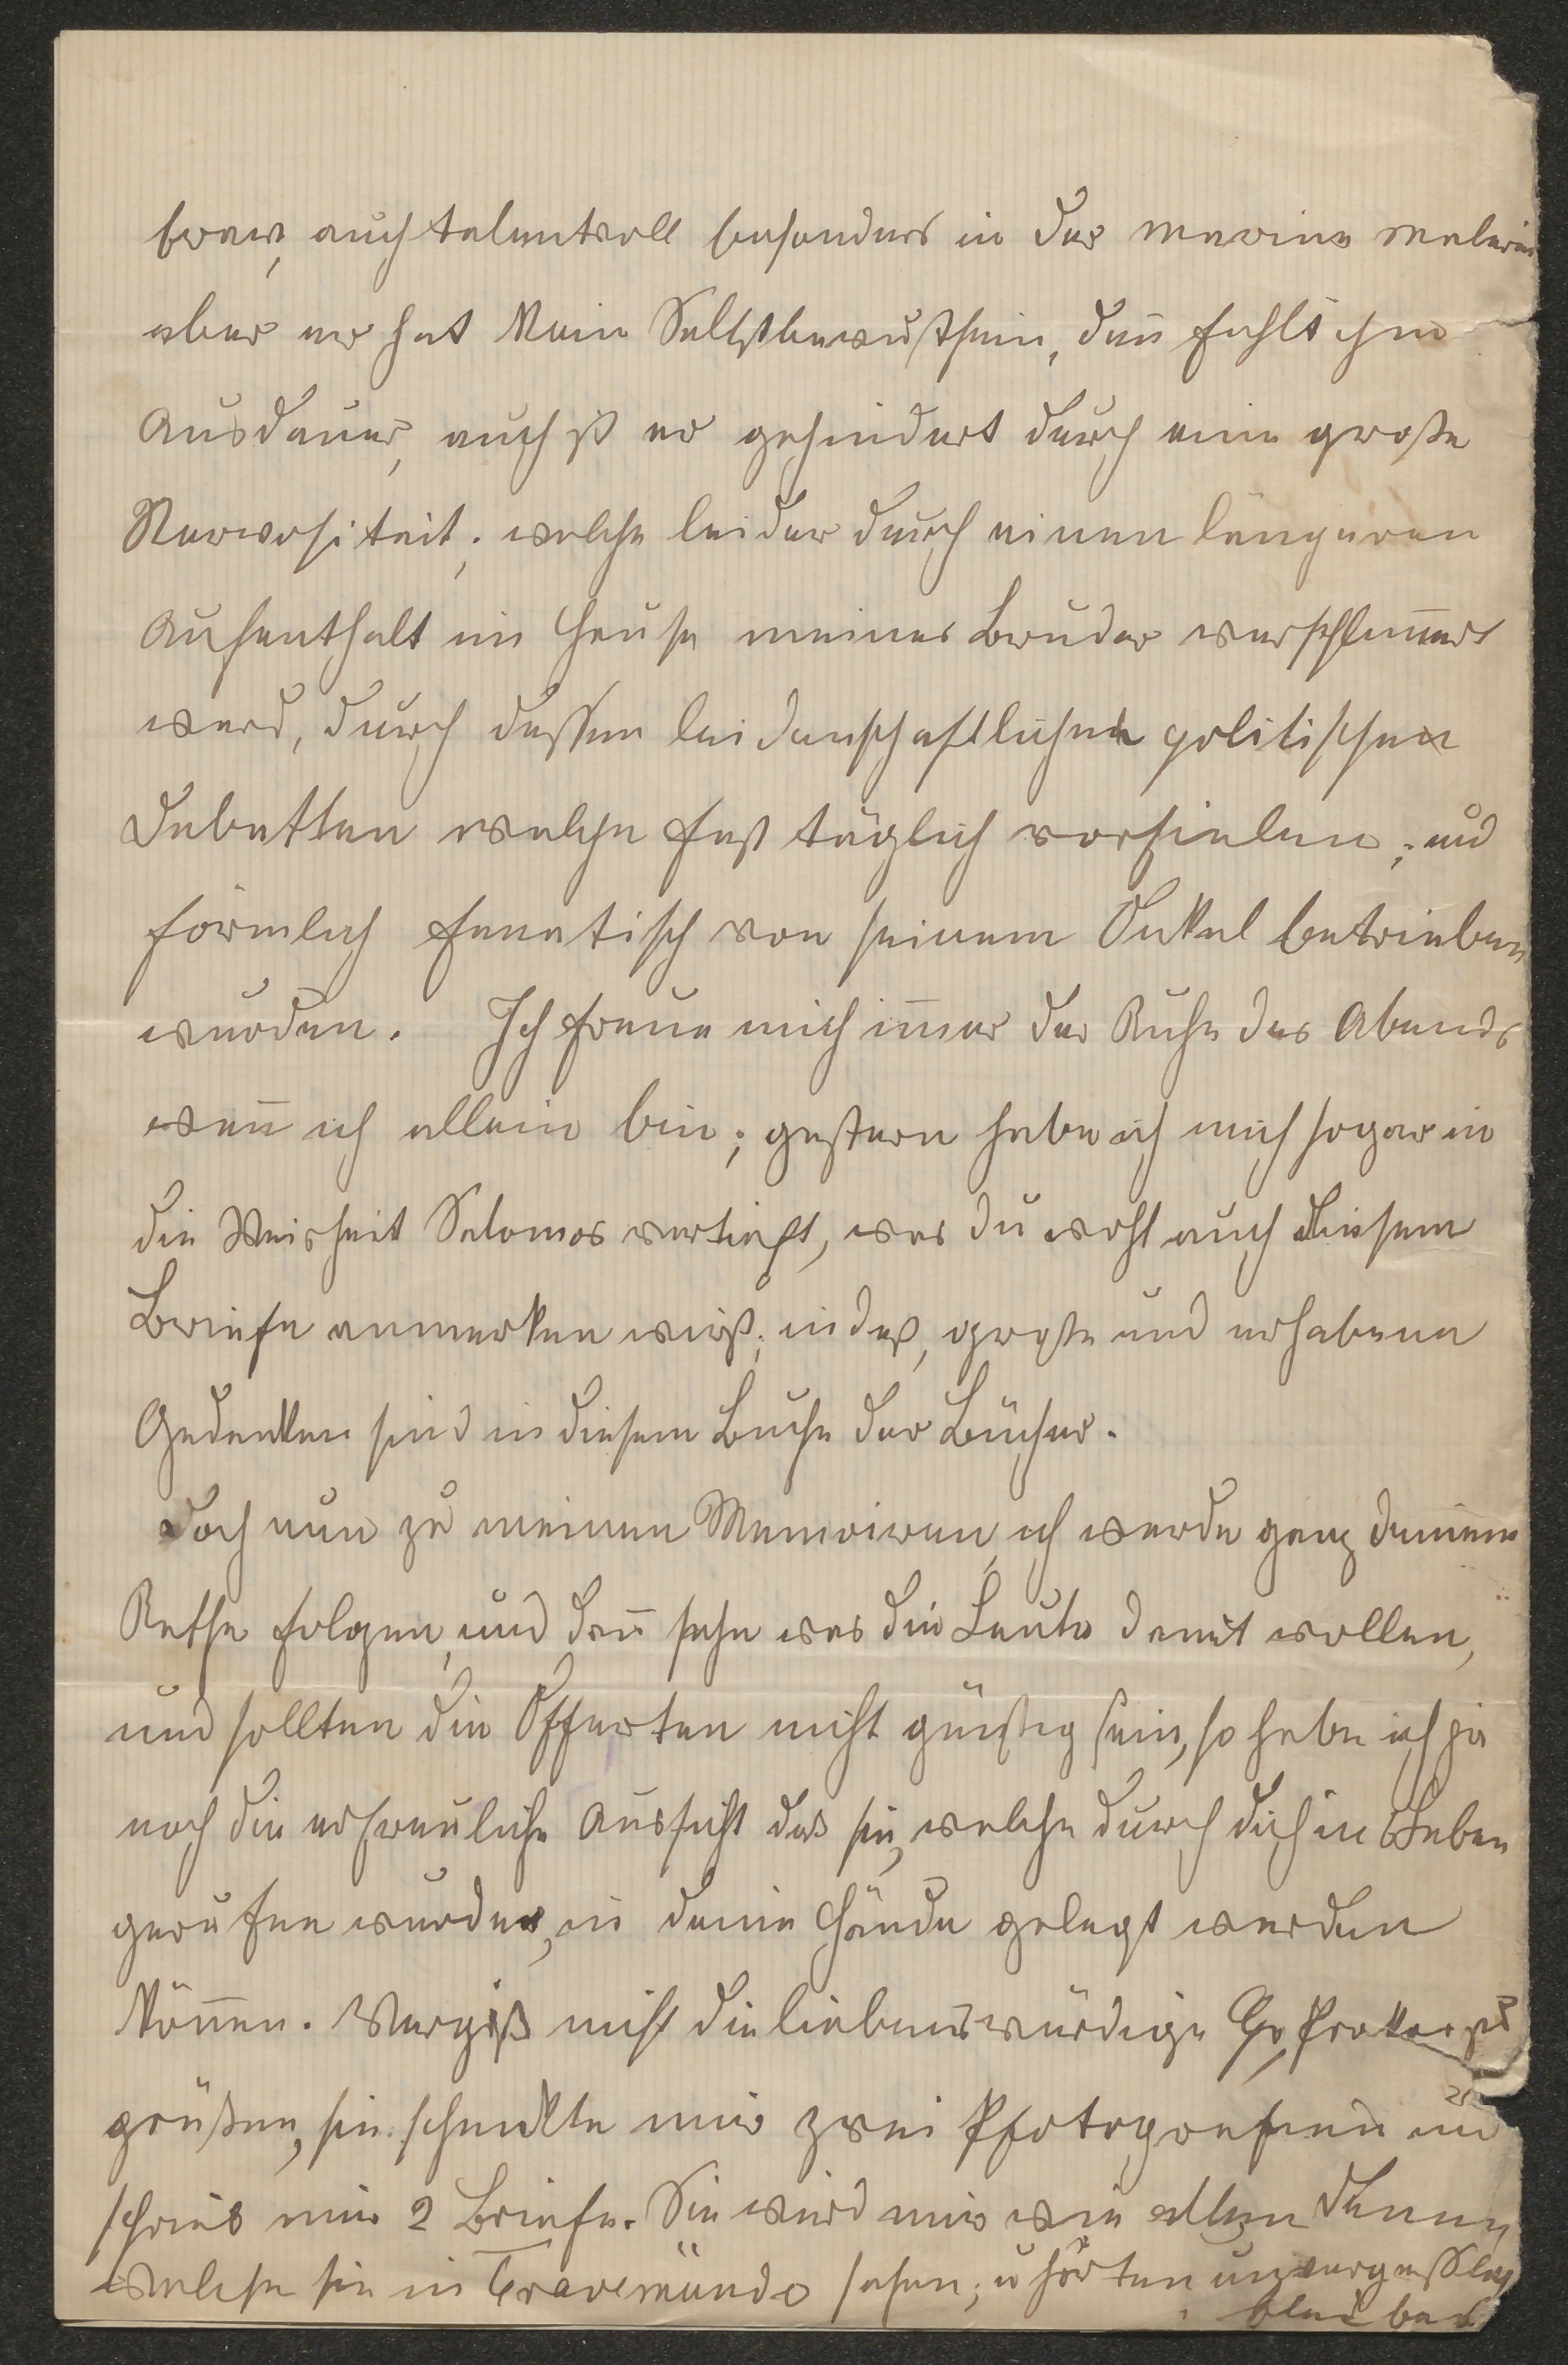 brav, auch talentvoll besonders in der marine malerei
aber er hat kein Selbstbewußtsein, dañ fehlt ihm
Ausdauer, auch ist er gehindert durch eine große
Nervosität; welche leider durch einen längeren
Aufenthalt im Hause meines Bruder verschlim̄ert
ward, durch dessen leidenschaftliche politische
Debatten welche fast täglich vorfielen; und
förmlich fanatisch von seinem Onkel betrieben
wurden. Ich freue mich im̄er der Ruhe des Abends
weñ ich allein bin; gestern habe ich mich sogar in
die Weisheit Salomos vertieft, was du wohl auch diesem
Briefe anmerken wirst; indeß, große und erhabene
Gedanken sind in diesem Buche der Bücher.
Doch nun zu meinen Memoiren, ich werde ganz deinem
Rathe folgen, und dañ sehe was die Leute damit wollen,
und sollten die Offerten nicht günstig sein, so habe ich ja
noch die erfreuliche Aussicht das sie, welche durch dich in Leben
gerufen wurden, in deine Hände gelegt werden
köñen. Vergiß nicht die liebenswürdige zu
grüßen, sie schenkte mir zwei Photografien und
schrieb mir 2 Briefe. Sie wird mir wie allen denen,
welche sie in Travemünde sahen; u hörten unvergeßlich
bleiben.